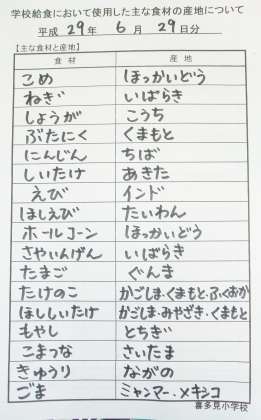 学校給食において使用した主な食材の産地について
平成 29年 6月 29日分
【主な食材と産地】
食材 産地
こめ ほっかいどう
ねぎ いばらき
しょうが こうち
ぶたにく くまもと
にんじん ちば
しいたけ あきた
えび インド
ほしえび たいわん
ホールコーン ほっかいどう
さやいんげん いばらき
たまご ぐんま
たけのこ かごしま・くまもと・ふくおか
ほししいたけ かごしま・みやざき・くまもと
もやし とちぎ
こまつな さいたま
きゅうり ながの
ごま ミャンマー・メキシコ
喜多見小学校